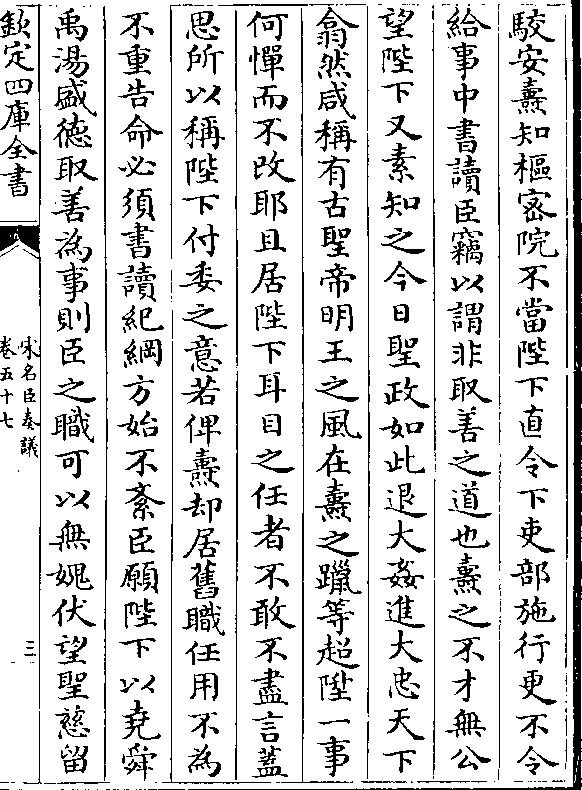 駮安燾知樞密院不當陛下直令下吏部施行更不令
給事中書讀臣竊以謂非取善之道也燾之不才無公
望陛下又素知之今日聖政如此退大姦進大忠天下
翕然咸稱有古聖帝明王之風在燾之躐等超陞一事
何憚而不改耶且居陛下耳目之任者不敢不盡言蓋
思所以稱陛下付委之意若俾燾却居舊職任用不為
不重告命必須書讀紀綱方始不紊臣願陛下以堯舜
禹湯盛德取善為事則臣之職可以無媿伏望聖慈留
欽定四庫全書
宋名臣奏議
卷五十七
三